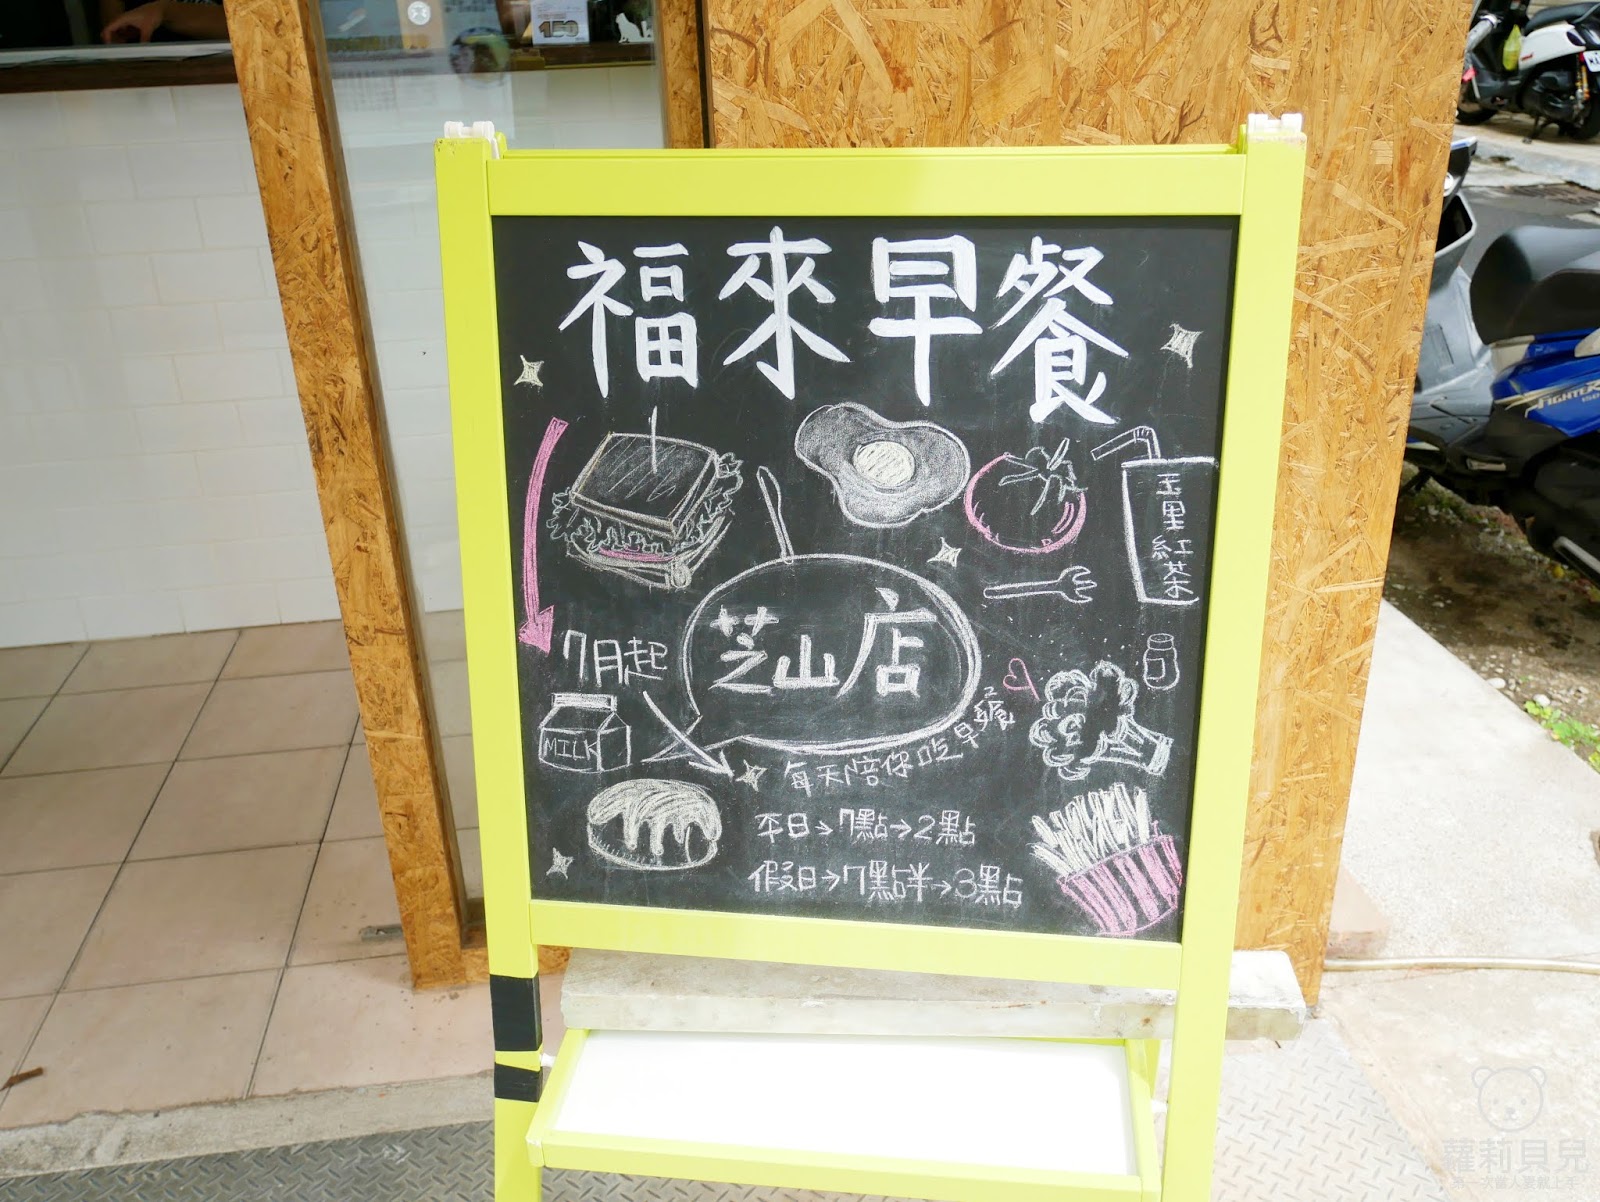 福來早餐
玉里紅茶
芝山店
7月起
MILK
每天陪你吃早餐
平日→7點→2點
假日→7點半→3點
150
FIGHTER
150
蘿莉貝兒